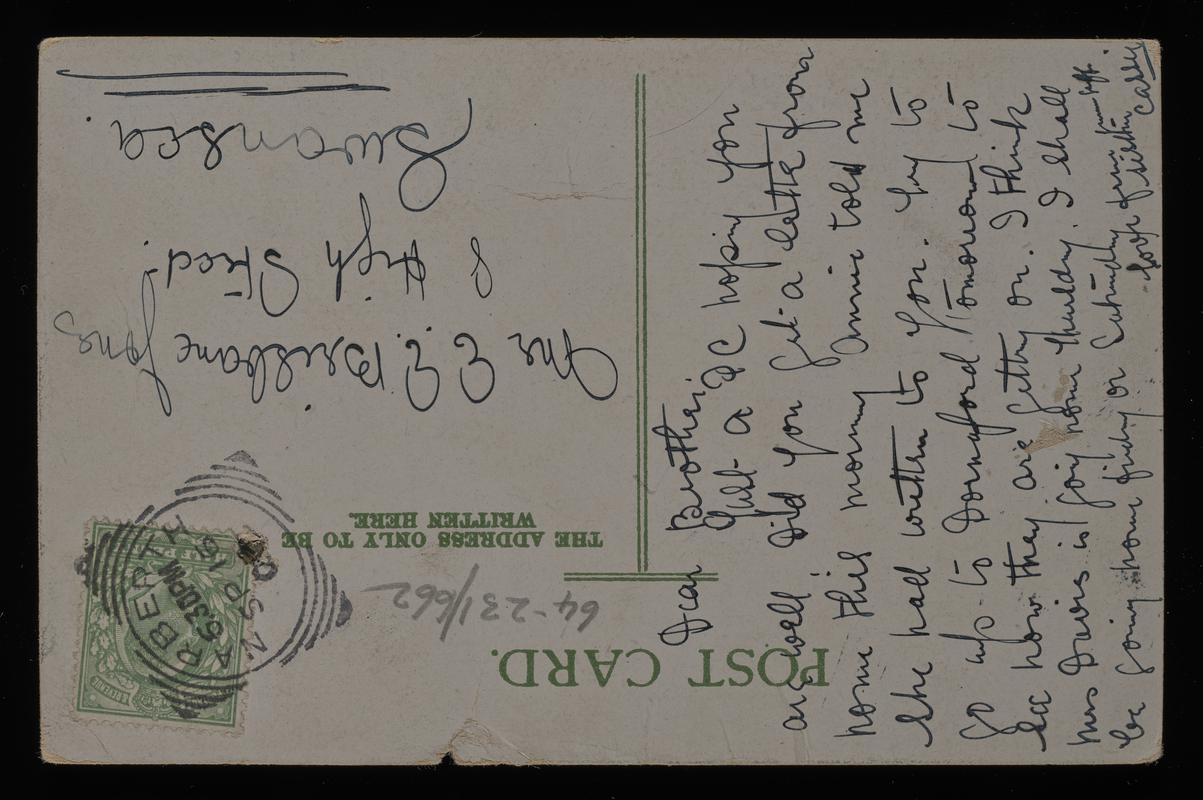 POST CARD.
THE ADDRESS ONLY TO BE
WRITTEN HERE.
64-231/662
NARBERTH
5.30PM
SP 15
Mr E. E. Brisbane Jones
8 High Street.
Swansea.
Dear Brother.
Just a PC hoping you
are well Did you get a letter from
home this morning Annie told me
she had written to you. Try to
go up to Dornaford Tomorrow to
see how they are getting on. I think
Mrs Davies is going home Thursday. I shall
be going home friday or Saturday
love